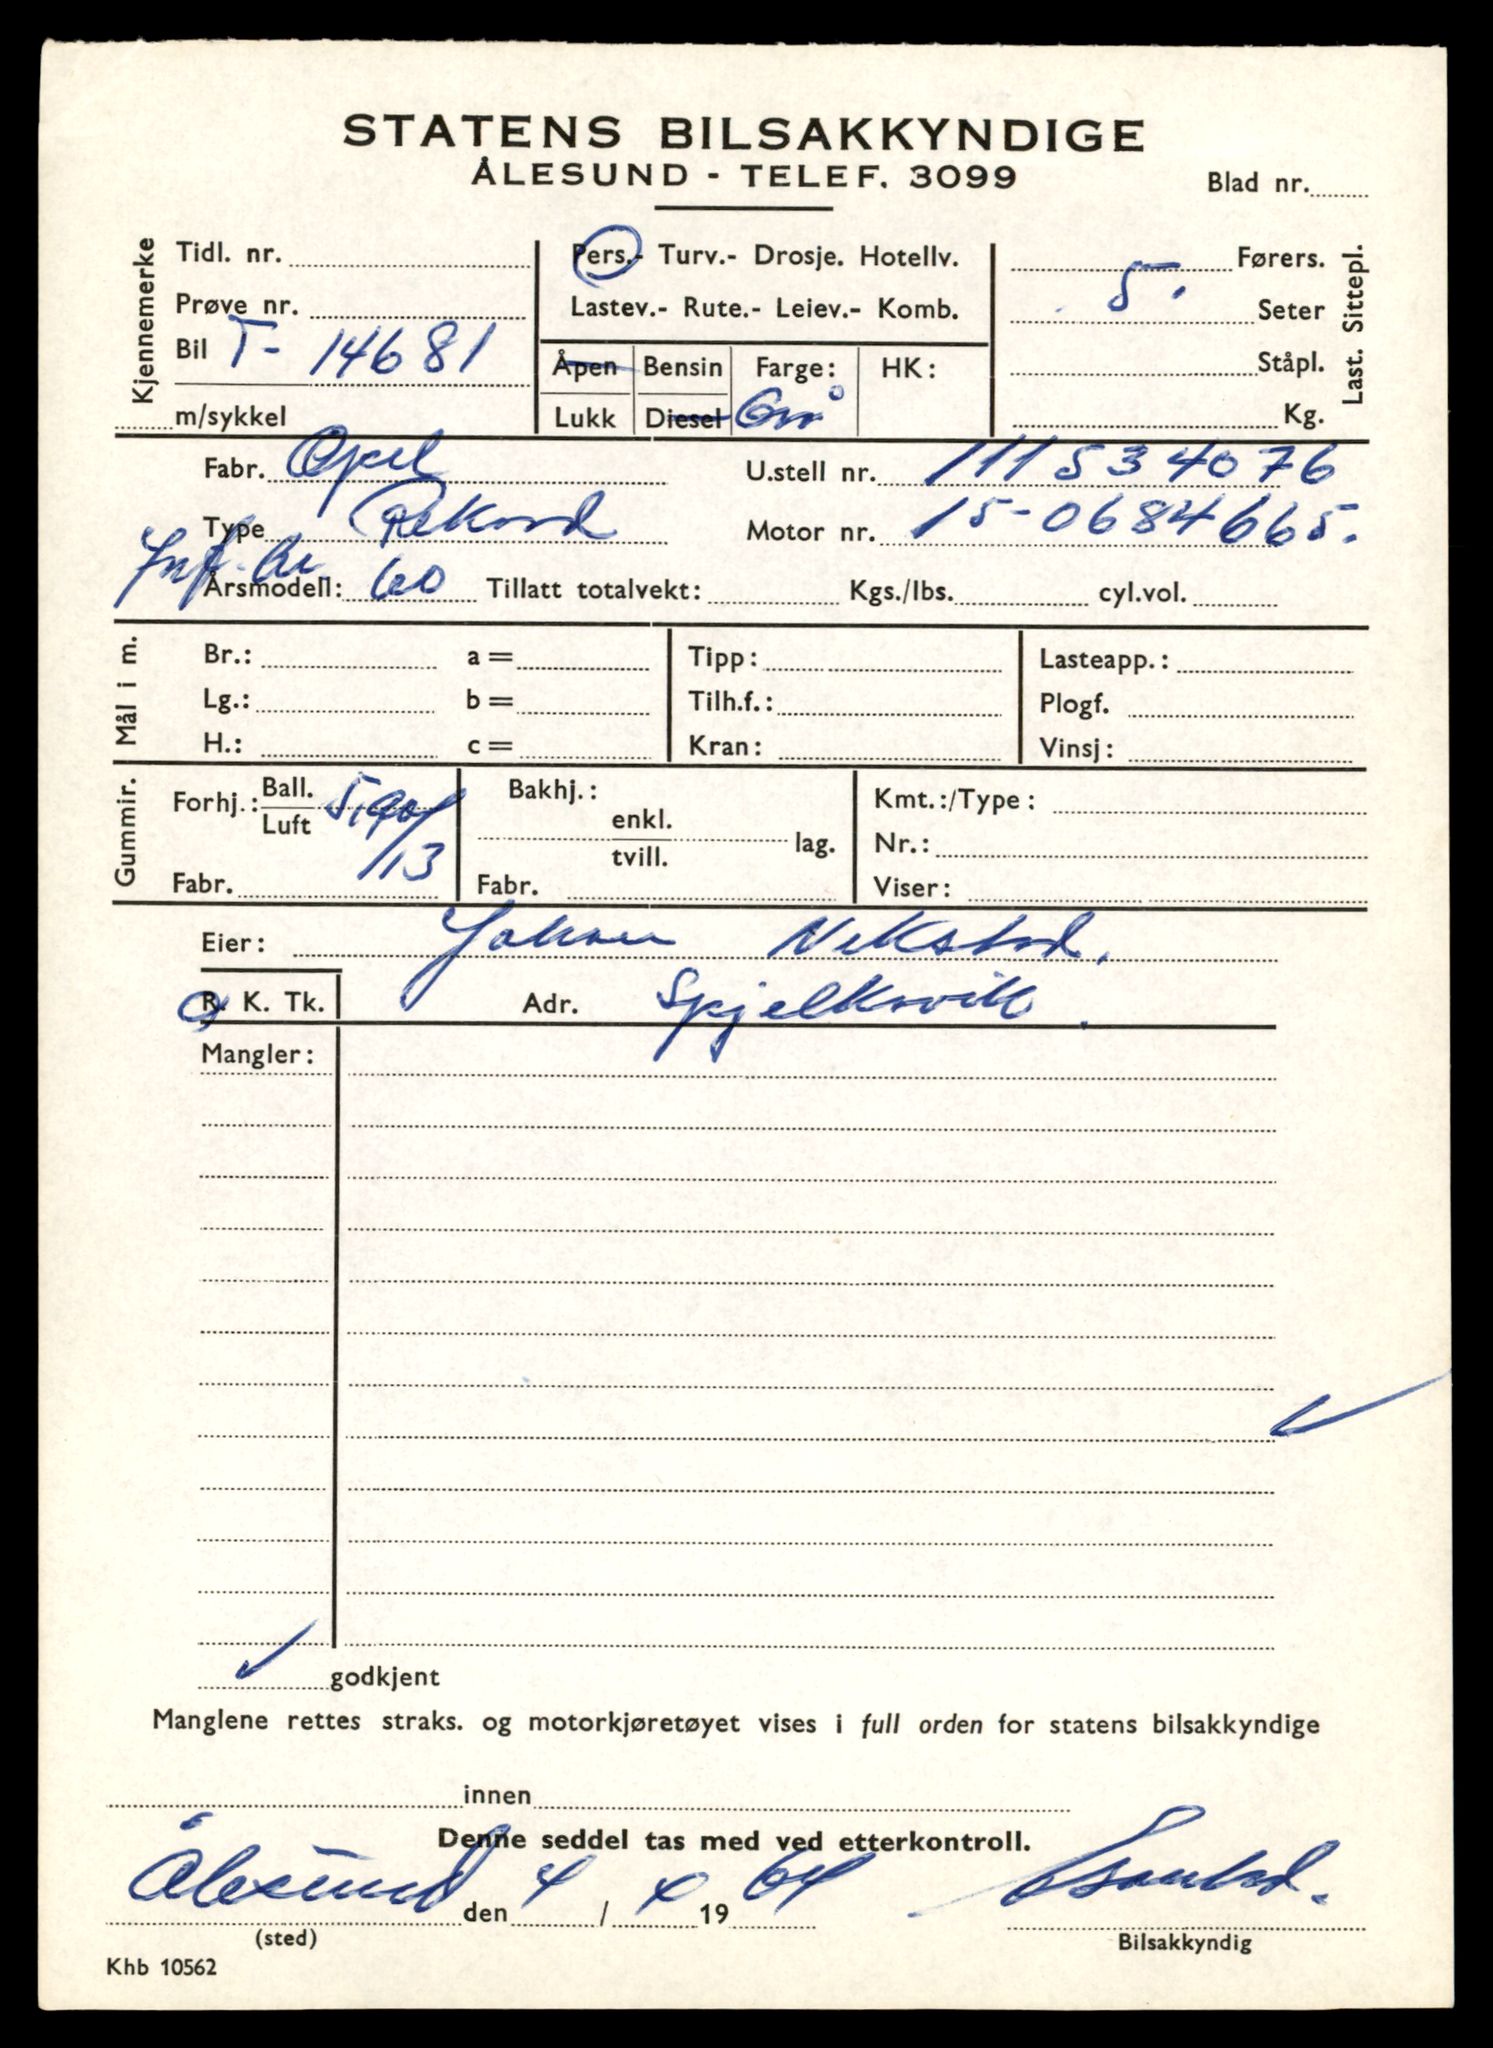 STATENS BILSAKKYNDIGE
ÅLESUND - TELEF. 3099
Blad nr.
Kjennemerke
Tidl. nr.
Prøve nr.
Bil T- 14681
m/sykkel
Pers.- Turv.- Drosje. Hotellv.
Lastev.- Rute.- Leiev.- Komb.
Åpen Bensin Farge: HK:
Lukk Diesel Grå
Last. Sittepl.
Førers.
5. Seter
Ståpl.
Kg.
Fabr. Opel U.stell nr. 111534076
Type Rekord Motor nr. 15-0684665.
Årsmodell: 60 Tillatt totalvekt: Kgs./lbs. cyl.vol.
Mål i m.
Br.: a = Tipp: Lasteapp.:
Lg.: b = Tilh.f.: Plogf.
H.: c = Kran: Vinsj:
Gummir.
Forhj.: Ball. Luft 5,90/13
Fabr.
Bakhj.:
enkl.
tvill. lag.
Fabr.
Kmt.:/Type:
Nr.:
Viser:
Eier: Johan
R. K. Tk. Adr. Spjelkavik.
Mangler:
godkjent
Manglene rettes straks. og motorkjøretøyet vises i full orden for statens bilsakkyndige
innen
Denne seddel tas med ved etterkontroll.
Ålesund den 4 / 19 64
(sted) Bilsakkyndig
Khb 10562